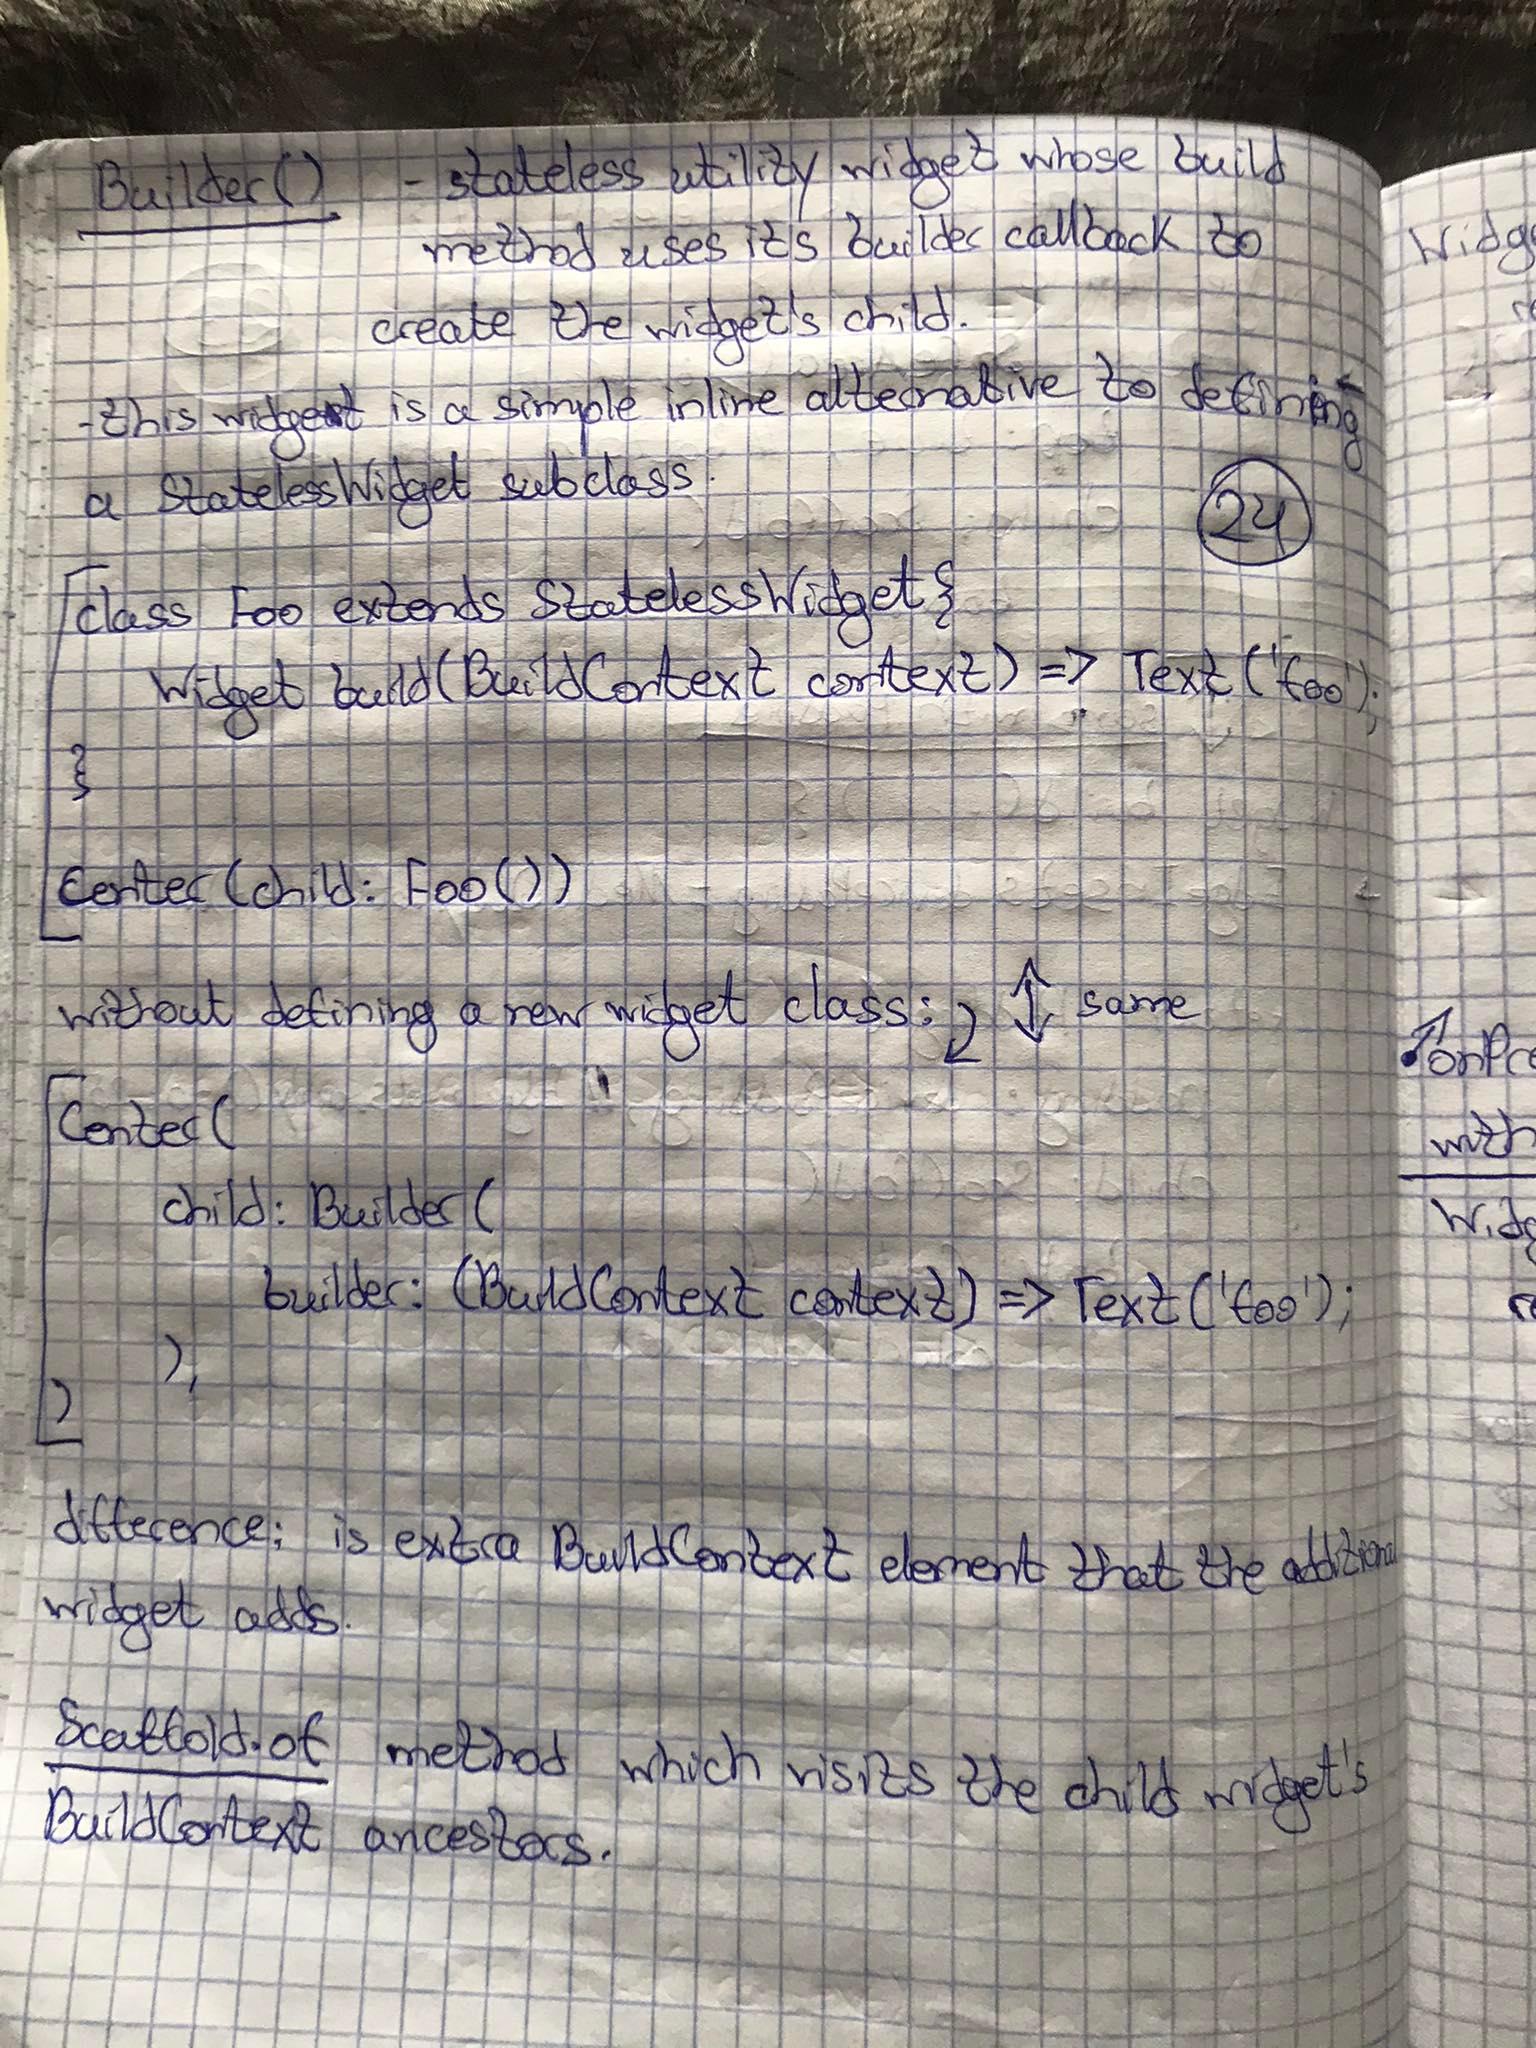 Builder() - stateless utility widget whose build
method uses it's builder callback to
create the widget's child.
- this widget is a simple inline alternative to defining
a StatelessWidget subclass.
24
class Foo extends StatelessWidget {
Widget build(BuildContext context) => Text('foo');
}
Center(child: Foo())
without defining a new widget class: ↕ same
Center(
child: Builder(
builder: (BuildContext context) => Text('foo');
),
)
difference: is extra BuildContext element that the additional
widget adds.
Scaffold.of method which visits the child widget's
BuildContext ancestors.
with